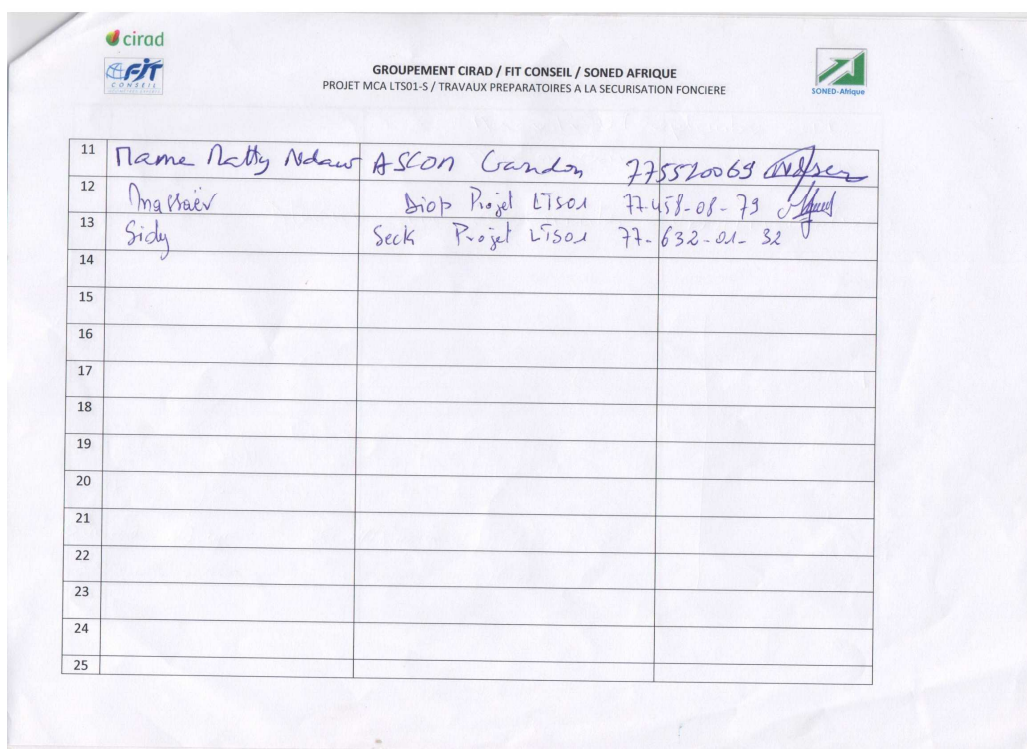 cirad
FIT
CONSEIL
GROUPEMENT CIRAD / FIT CONSEIL / SONED AFRIQUE
PROJET MCA LTS01-S / TRAVAUX PREPARATOIRES A LA SECURISATION FONCIERE
SONED-Afrique
11 Mame Matty Ndaw ASCOM Gandon 775520069
12 Massaër Diop Projet LTS01 77-458-08-79
13 Sidy Seck Projet LTS01 77-632-01-32
14
15
16
17
18
19
20
21
22
23
24
25